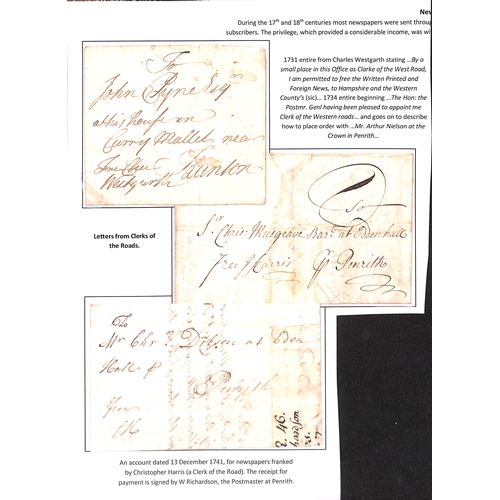 New
During the 17th and 18th centuries most newspapers were sent throug
subscribers. The privilege, which provided a considerable income, was wi
1731 entire from Charles Westgarth stating ...By a
small place in this Office as Clarke of the West Road,
I am permitted to free the Written Printed and
Foreign News, to Hampshire and the Western
County's (sic)... 1734 entire beginning ...The Hon: the
Postmr. Genl having been pleased to appoint me
Clerk of the Western roads... and goes on to describe
how to place order with ...Mr. Arthur Nielson at the
Crown in Penrith...
To
John Pyne Esqr
at his house in
Curry Mallet near
Taunton
Westgarth
Letters from Clerks of
the Roads.
To
Sr Chris: Musgrave Bart at Edenhall
Free Harris Penrith
To
Mr Chr at Eden
Hall
Penrith
Free
2. 46.
hardson
An account dated 13 December 1741, for newspapers franked
by Christopher Harris (a Clerk of the Road). The receipt for
payment is signed by W Richardson, the Postmaster at Penrith.